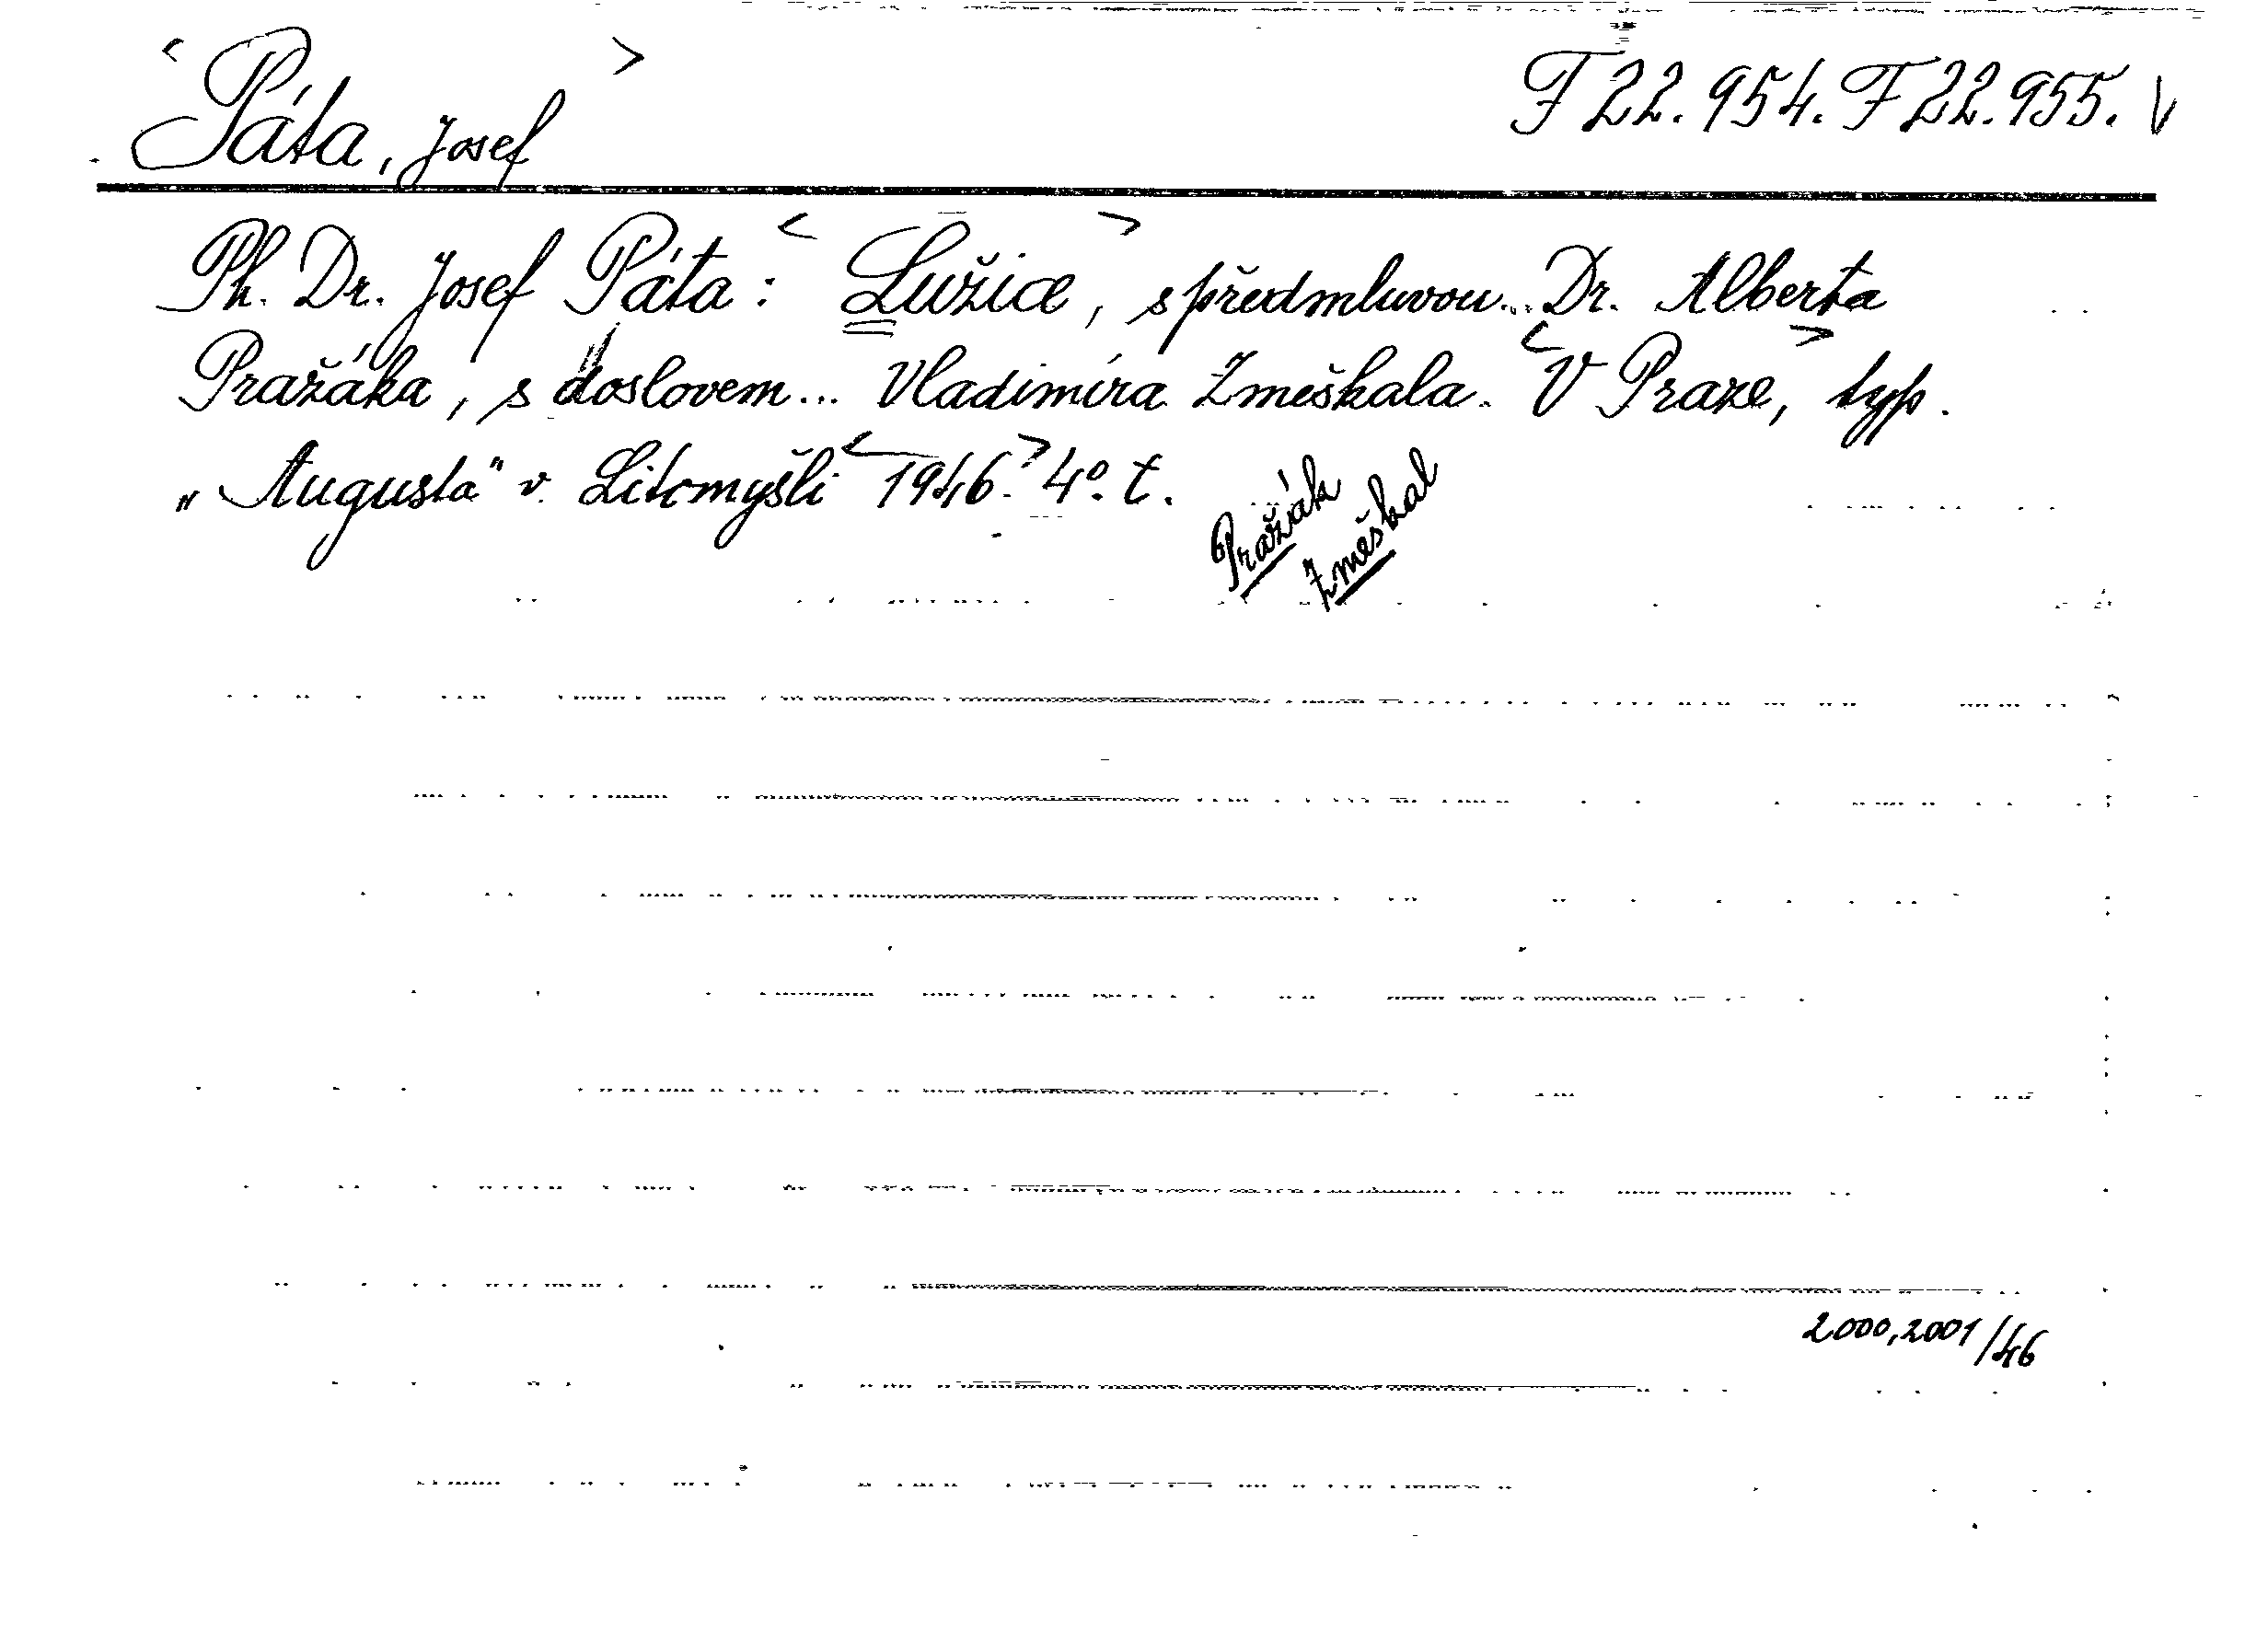 <Páta, Josef> F 22.954. F 22.955. V
Ph. Dr. Josef Páta: <Lužice>, s předmluvou... Dr. Alberta
Pražáka, s doslovem... Vladimíra Zmeškala. <V Praze>, typ.
„Augusta" v Litomyšli <1946.> 4°. t.
Pražák
Zmeškal
2000,2001/46